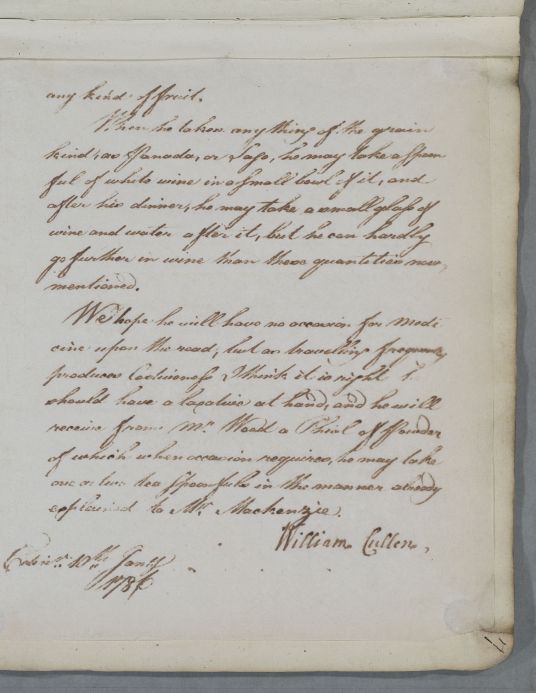 any kind of fruit.
When he takes any thing of the grain
kind, as Panada, or Sago, he may take a spoon
ful of white wine in a small bowl of it, and
after his dinner, he may take a small glass of
wine and water after it, but he can hardly
go further in wine than these quantities now
mentioned.
We hope he will have no occasion for Medi
cine upon the road, but as travelling frequently
produces Costiveness I think it is right he
should have a laxative at hand, and he will
receive from Mr. Wood a Phial of Powder
of which when occasion requires, he may take
one or two tea Spoonfuls in the manner already
explained to Mr. Mackenzie.
William Cullen.
Edinr. Jany